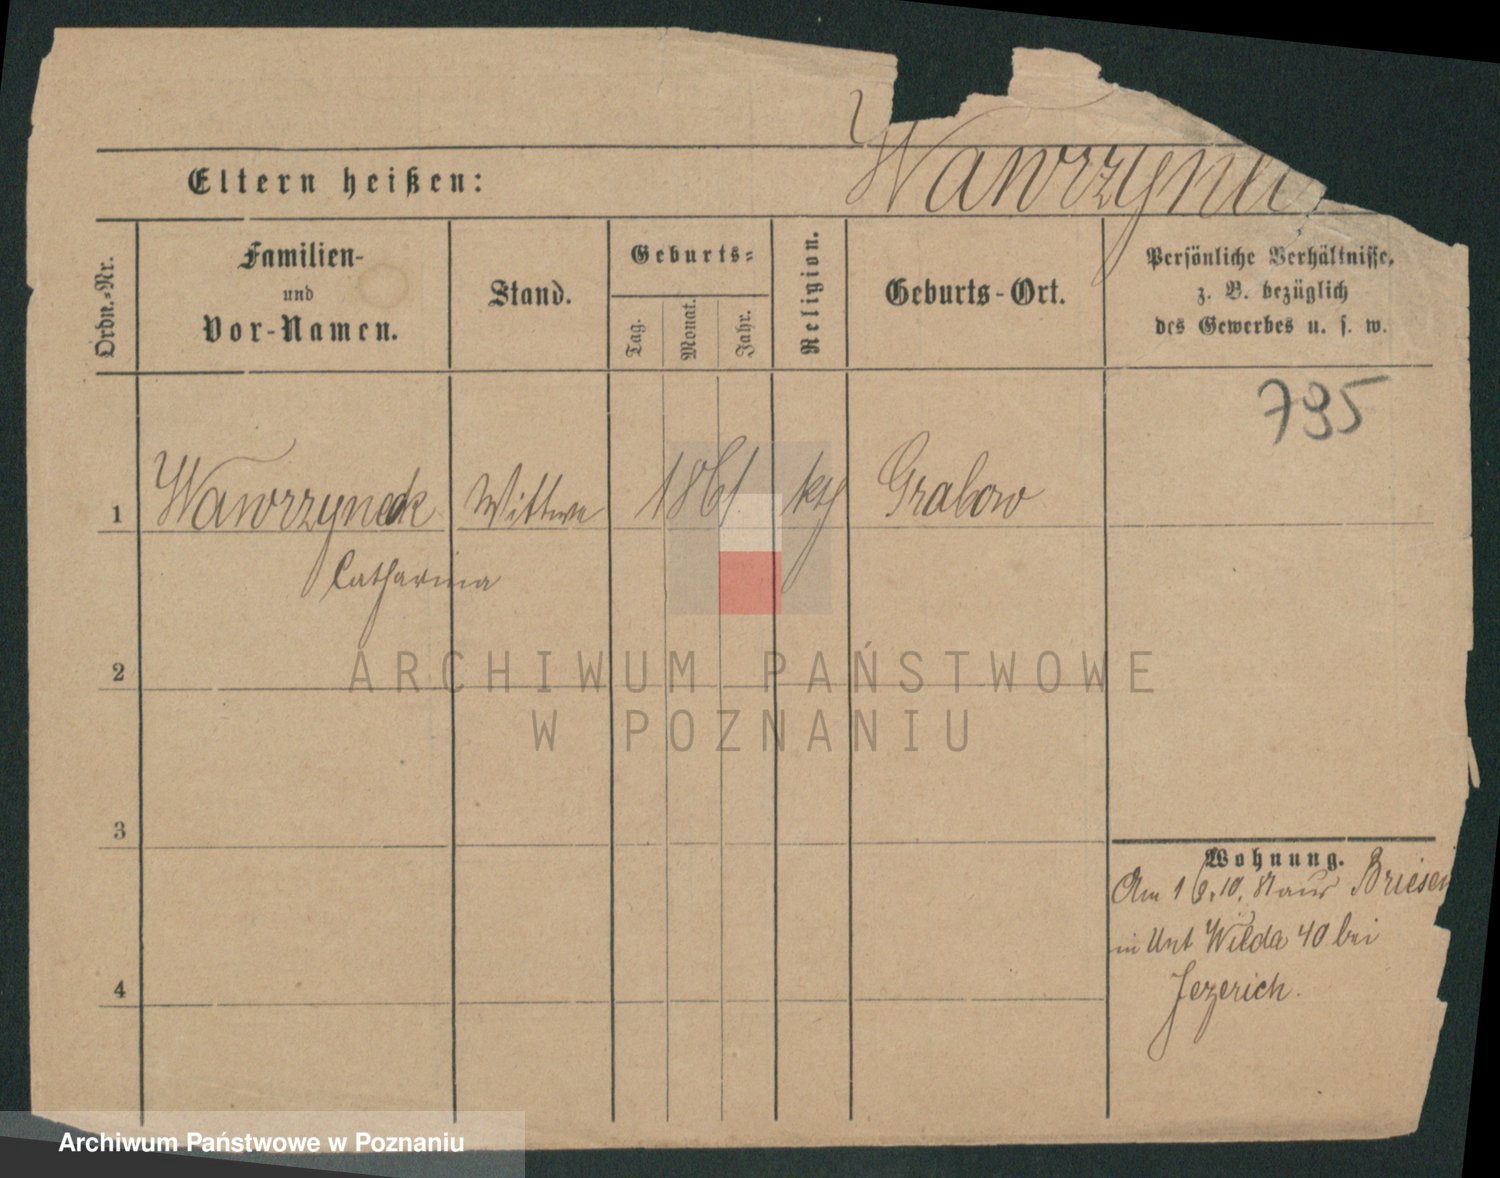 Wawrzynec
Eltern heißen:
Ordn.-Nr.
Familien-
und
Vor-Namen.
Stand.
Geburts-
Tag.
Monat.
Jahr.
Religion.
Geburts-Ort.
Persönliche Verhältnisse,
z. B. bezüglich
des Gewerbes u. s. w.
795
1 Wawrzynek Wittwe 1861 kth Grabow
Catharina
2
3
4
Wohnung.
Am 16.10. aus Briesen
in Unt Wilda 40 bei
Jezerich.
ARCHIWUM PAŃSTWOWE
W POZNANIU
Archiwum Państwowe w Poznaniu